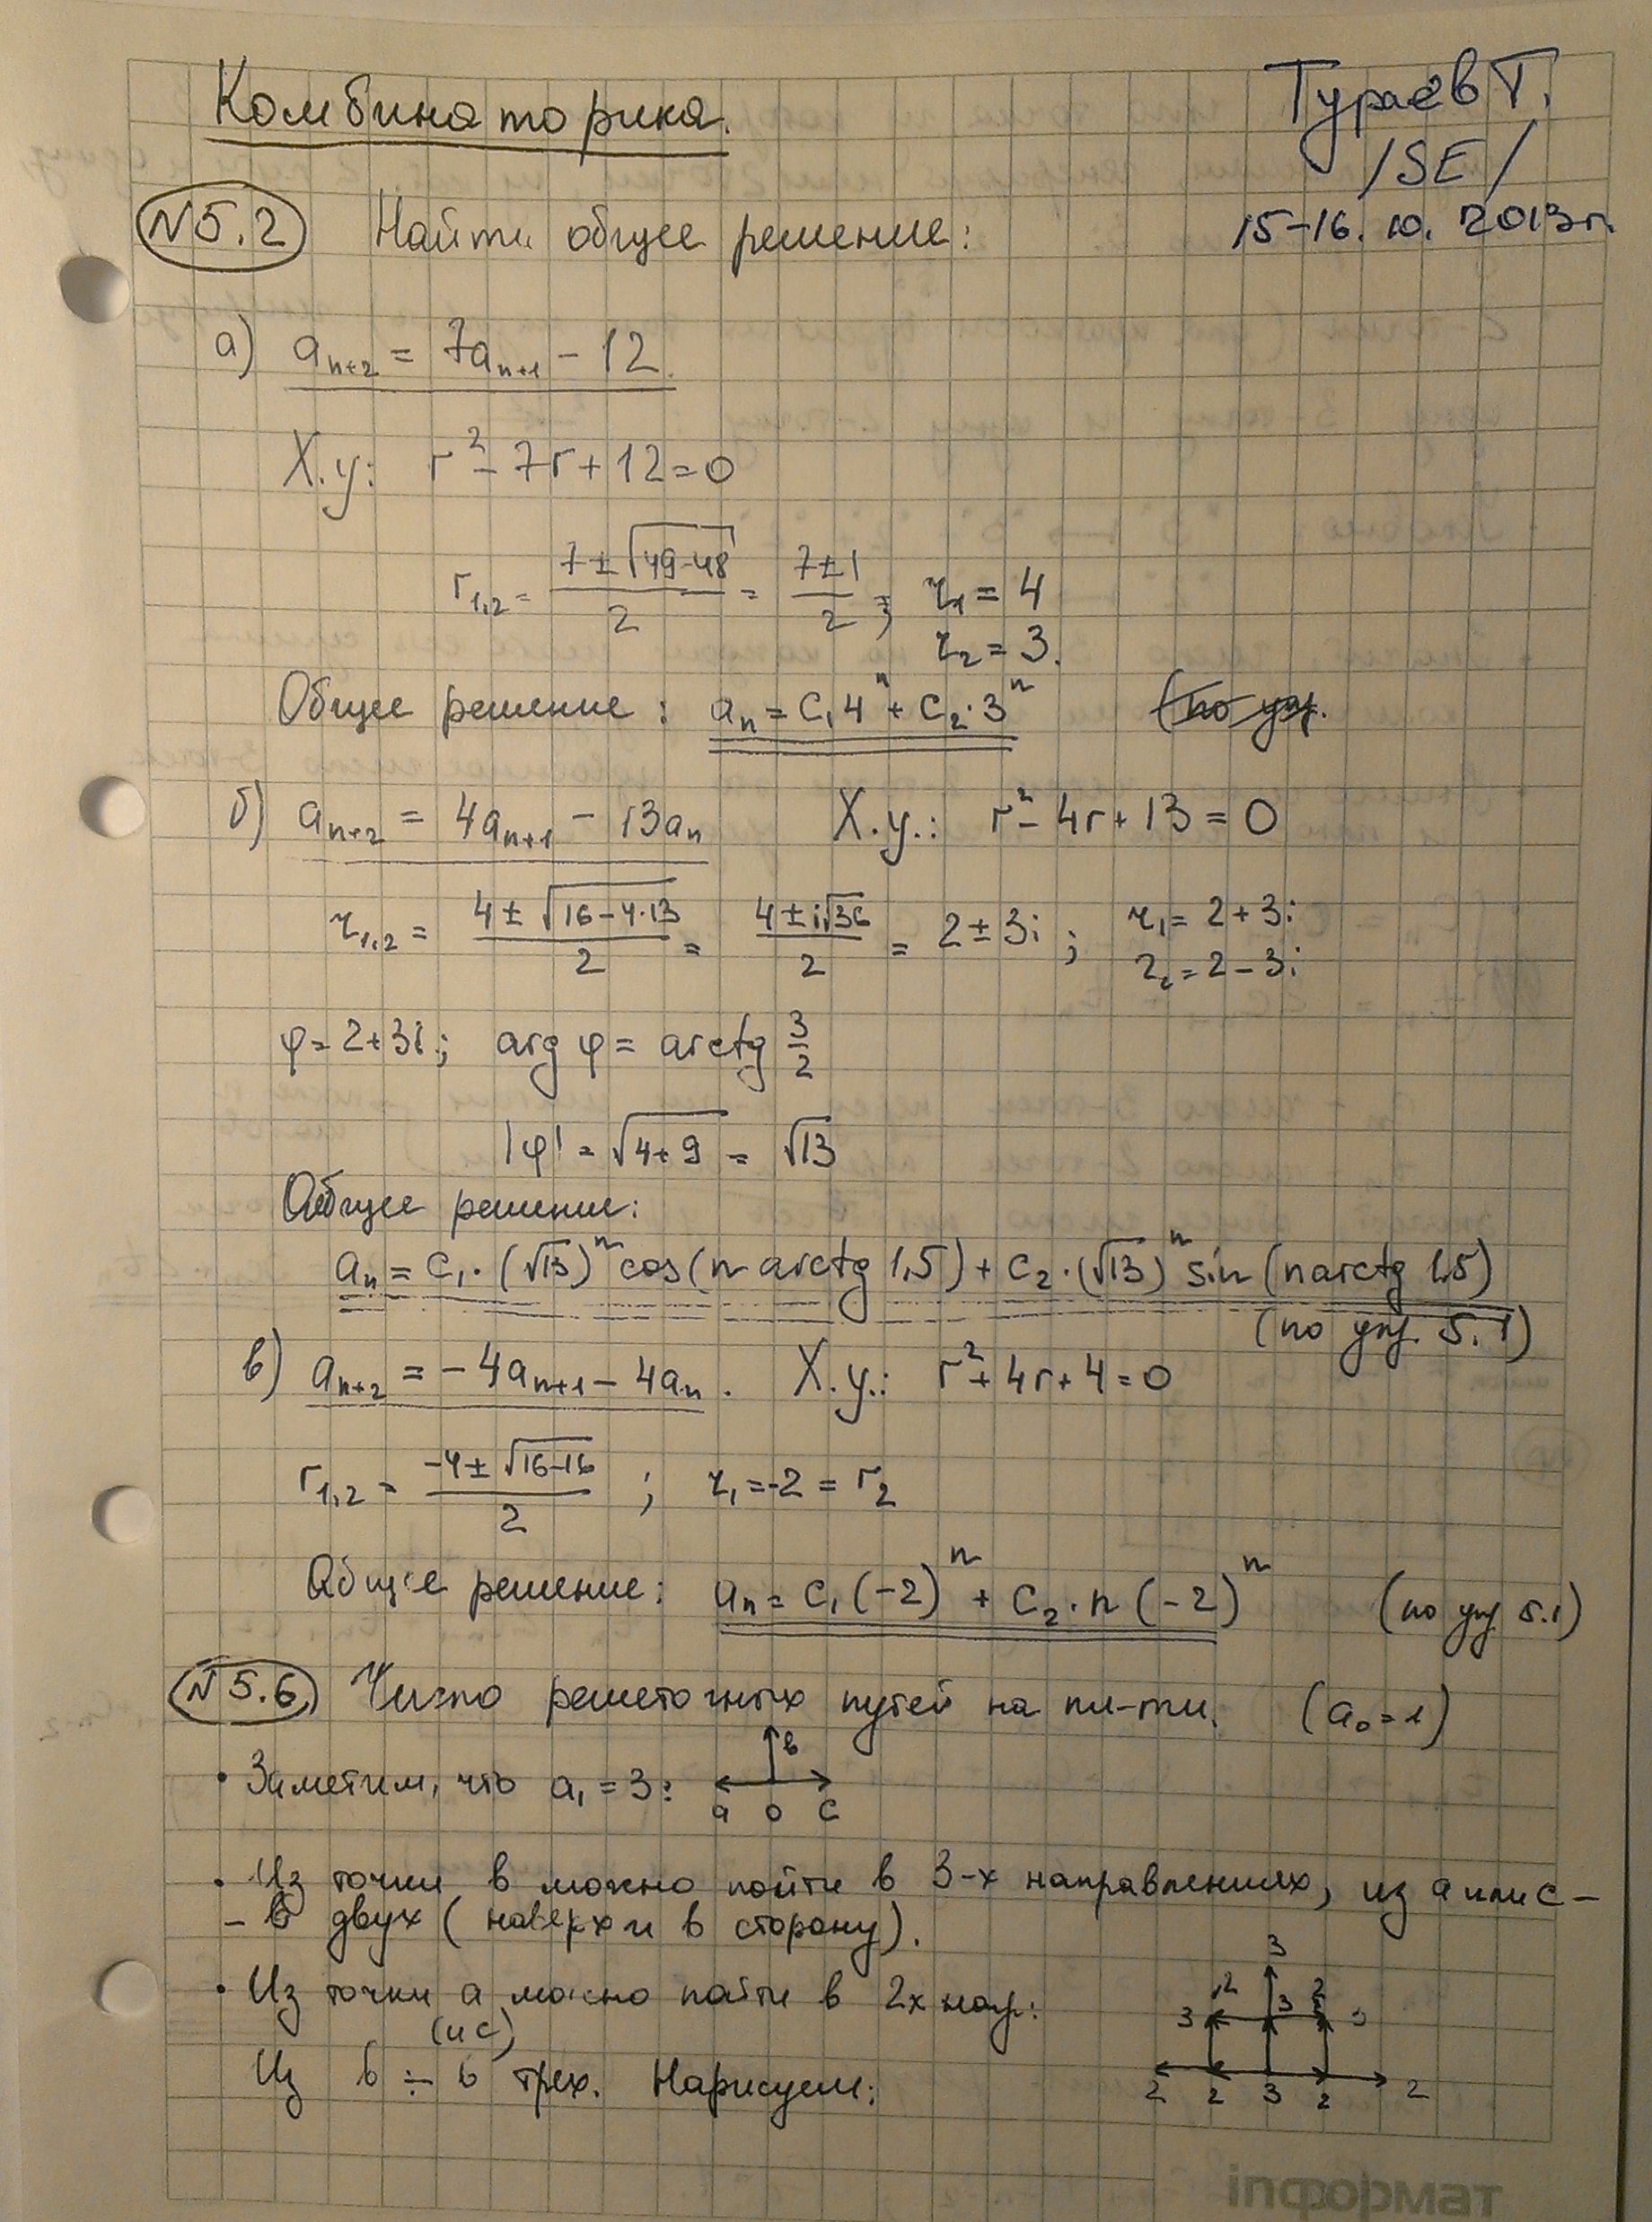 Комбинаторика.
Тураев Т.
/SE/
15-16.10.2013г.
№5.2 Найти общее решение:
а) aₙ₊₂ = 7aₙ₊₁ - 12.
Х.у: r² - 7r + 12 = 0
r₁,₂ = (7 ± √(49-48))/2 = (7±1)/2 ; r₁ = 4
r₂ = 3.
Общее решение: aₙ = C₁4ⁿ + C₂·3ⁿ (по упр.
б) aₙ₊₂ = 4aₙ₊₁ - 13aₙ Х.у.: r² - 4r + 13 = 0
r₁,₂ = (4 ± √(16-4·13))/2 = (4 ± i√36)/2 = 2 ± 3i ; r₁ = 2+3i
r₂ = 2-3i
φ = 2+3i ; arg φ = arctg 3/2
|φ| = √(4+9) = √13
Общее решение:
aₙ = C₁·(√13)ⁿ cos(n arctg 1,5) + C₂·(√13)ⁿ sin(n arctg 1,5)
(по упр. 5.1)
в) aₙ₊₂ = -4aₙ₊₁ - 4aₙ. Х.у.: r² + 4r + 4 = 0
r₁,₂ = (-4 ± √(16-16))/2 ; r₁ = -2 = r₂
Общее решение: aₙ = C₁(-2)ⁿ + C₂·n(-2)ⁿ (по упр 5.1)
№5.6. Число решеточных путей на пл-ти. (a₀=1)
• Заметим, что a₁ = 3:
в
a 0 c
• Из точки в можно пойти в 3-х направлениях, из a или c -
- в двух (наверх и в сторону).
• Из точки a можно пойти в 2х напр:
(и c)
Из b ÷ в трех. Нарисуем:
3
2 2
3 3 3
2 2 3 2 2
inформат